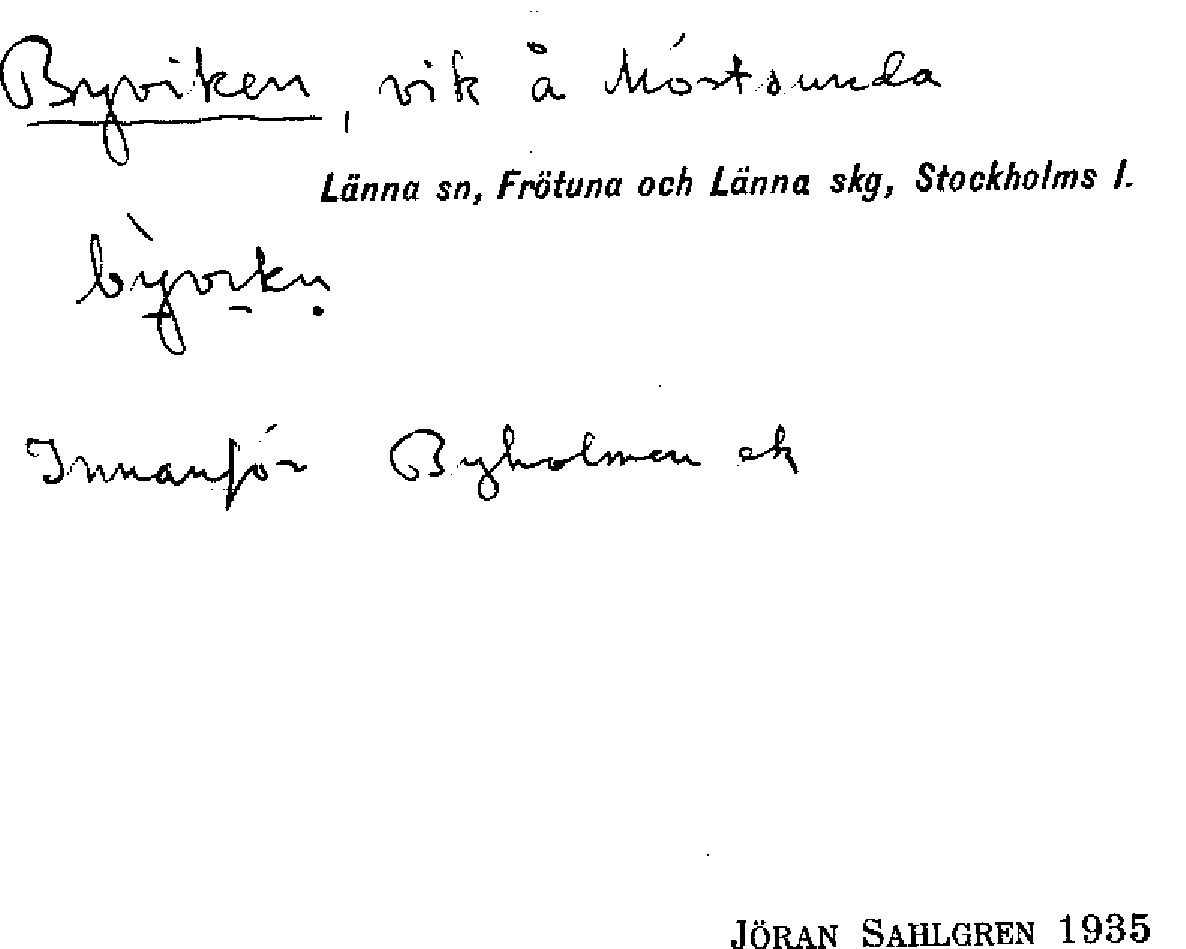 Byviken, vik å Mörtsunda
Länna sn, Frötuna och Länna skg, Stockholms l.
bỳvikn
Innanför Byholmen ek
JÖRAN SAHLGREN 1935